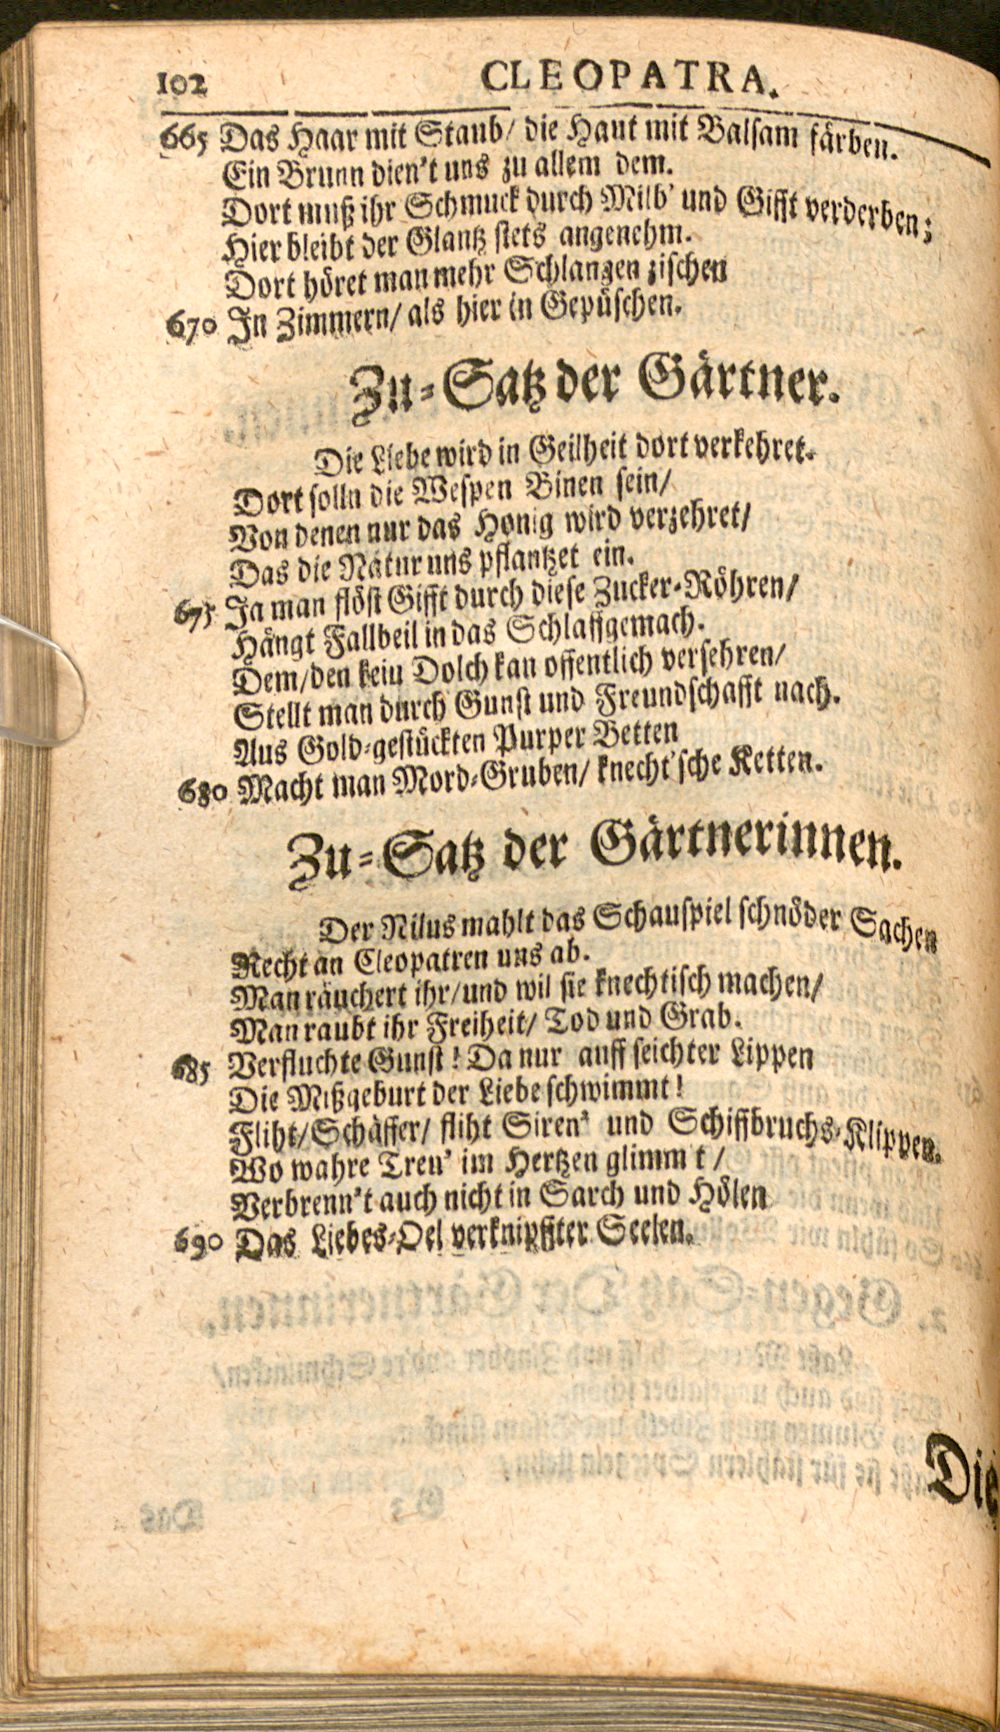 102 CLEOPATRA.
665 Das Haar mit Staub/ die Haut mit Balsam färben.
Ein Brunn dien't uns zu allem dem.
Dort muß ihr Schmuck durch Milb' und Gifft verderben;
Hier bleibt der Glantz stets angenehm.
Dort höret man mehr Schlangen zischen
670 In Zimmern/ als hier in Gepüschen.
Zu-Satz der Gärtner.
Die Liebe wird in Geilheit dort verkehret.
Dort solln die Wespen Binen sein/
Von denen nur das Honig wird verzehret/
Das die Natur uns pflantzet ein.
675 Ja man flöst Gifft durch diese Zucker-Röhren/
Hängt Fallbeil in das Schlaffgemach.
Dem/ den keiu Dolch kan offentlich versehren/
Stellt man durch Gunst und Freundschafft nach.
Aus Gold-gestückten Purper Betten
680 Macht man Mord-Gruben/ knecht'sche Ketten.
Zu-Satz der Gärtnerinnen.
Der Nilus mahlt das Schauspiel schnöder Sachen
Recht an Cleopatren uns ab.
Man räuchert ihr/ und wil sie knechtisch machen/
Man raubt ihr Freiheit/ Tod und Grab.
685 Verfluchte Gunst! Da nur auff seichter Lippen
Die Mißgeburt der Liebe schwimmt!
Fliht/ Schäffer/ fliht Siren' und Schiffbruchs-Klippen.
Wo wahre Treu' im Hertzen glimm t /
Verbrenn't auch nicht in Sarch und Hölen
690 Das Liebes-Oel verknipffter Seelen.
Die